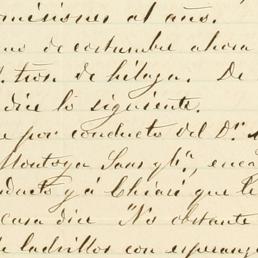 omisiones al año.
mo de costumbre ahora
tion de hilaza. De
dice lo siguiente.
e por conducto del Dr.
Montoya Saas y
nducto y á Chiari que le
casa dice "No obstante
de ladrillos con esperanz